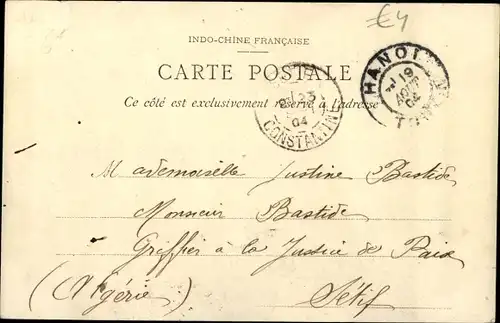 €4
INDO-CHINE FRANÇAISE
CARTE POSTALE
Ce côté est exclusivement réservé à l'adresse
HANOI
19
AOUT
04
23
04
CONSTANTINE
Mademoiselle Justine Bastide
Monsieur Bastide
Greffier à la Justice de Paix
(Algérie) Sétif